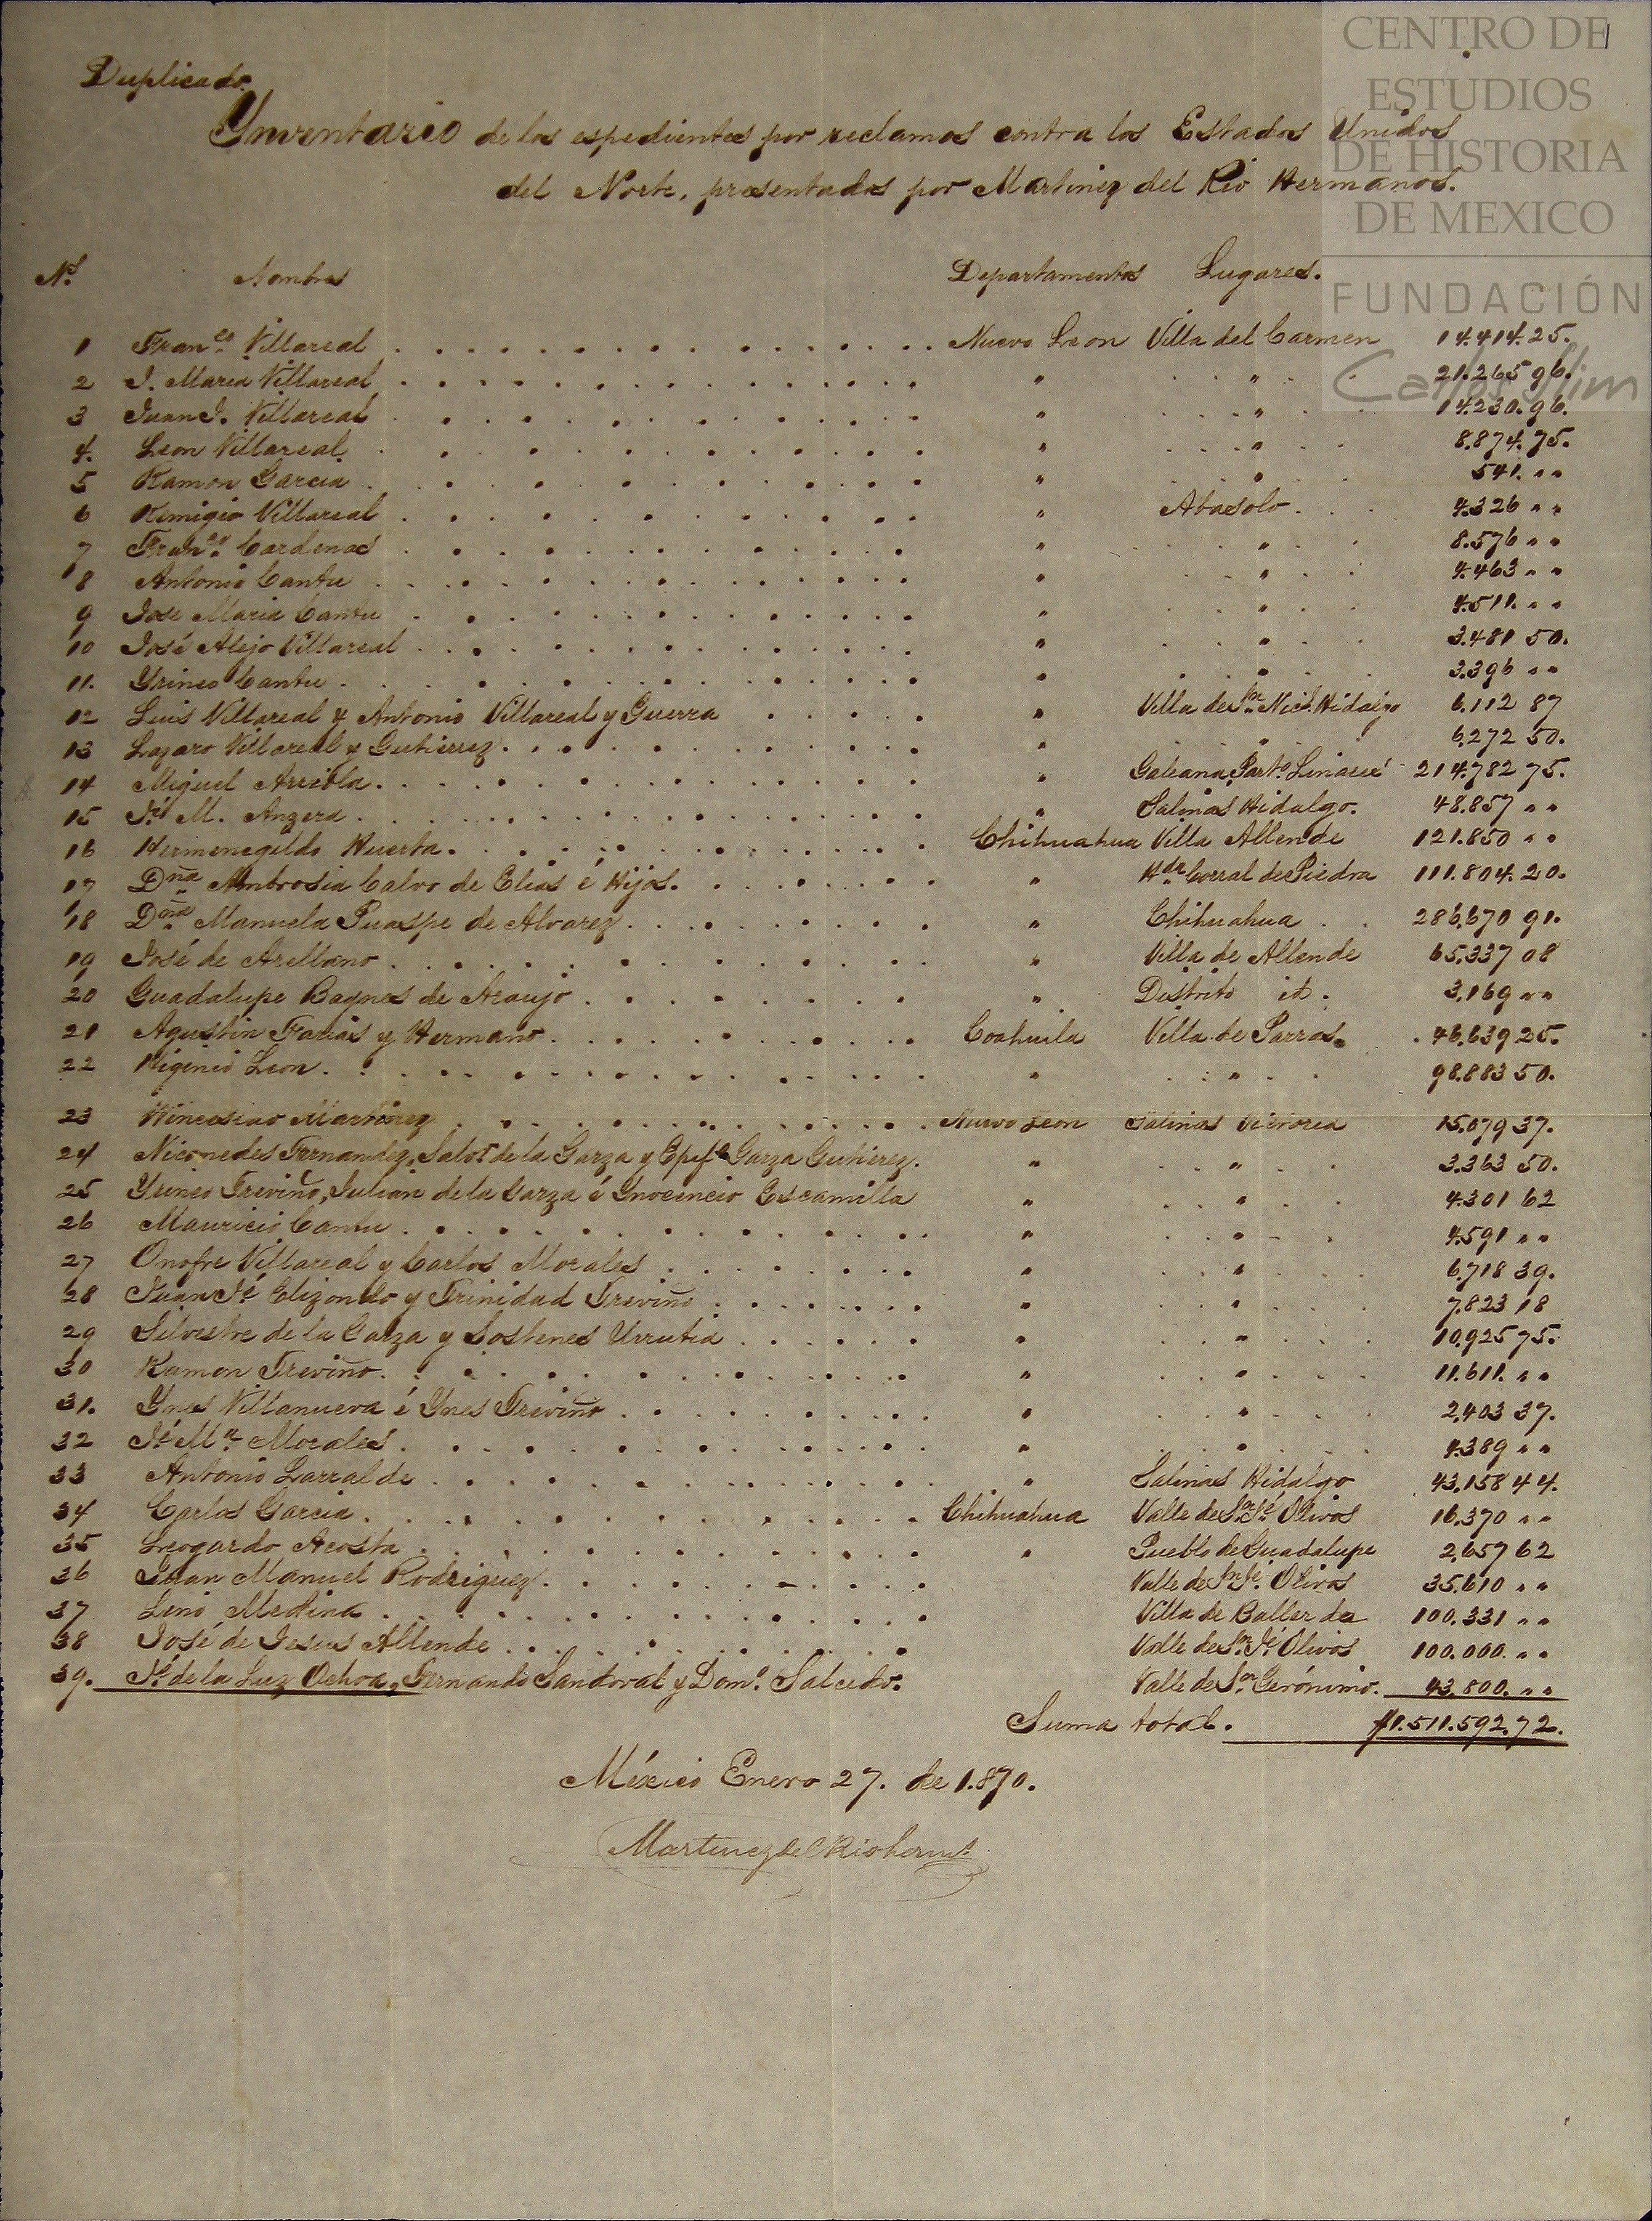 CENTRO DE
ESTUDIOS
DE HISTORIA
DE MEXICO
FUNDACIÓN
Carlos Slim
Duplicado.
Ynventario de los espedientes por reclamos contra los Estados Unidos
del Norte, presentados por Martinez del Rio Hermanos.
Nos. Nombres Departamentos Lugares.
1 Franco. Villareal Nuevo Leon Villa del Carmen 14.414.25.
2 J. Maria Villareal " " 21.265 96.
3 Juan J. Villareal " " 14.230.96.
4. Leon Villareal " " 8.874.75.
5 Ramon Garcia " " 541. " "
6 Remigio Villareal " Abasolo 4.326 " "
7 Franco. Cardenas " " 8.576 " "
8 Antonio Cantu " " 4.463 " "
9 Jose Maria Cantu " " 4.511. " "
10 José Alejo Villareal " " 3.481 50.
11. Yrineo Cantu " " 3.396 " "
12 Luis Villareal y Antonio Villareal y Guerra " Villa de Sn. Nics. Hidalgo 6.112 87
13 Lazaro Villareal y Gutierrez " " 6,272 50.
14 Miguel Arreola " Galeana, Parto. Linares 214.782 75.
15 Jé. M. Angera " Salinas Hidalgo. 48.857 " "
16 Hermenegildo Huerta. Chihuahua Villa Allende 121.850 " "
17 Dña Ambrosia Calvo de Elias é Hijos. " Hda. Corral de Piedra 111.804.20.
18 Doña Manuela de Alvarez " Chihuahua 286,670 91.
19 José de Arellano " Villa de Allende 65.337 08
20 Guadalupe de Araujo " Distrito id. 3,169 " "
21 Agustin Farias y Hermano Coahuila Villa de Parras. 46,639 25.
22 Higinio Leon. " " 98.883 50.
23 Winceslao Martinez Nuevo Leon Salinas Victoria 15.079 37.
24 Nicomedes Fernandez, Salvr. de la Garza y Epifo. Garza Gutierez. " " 3.363 50.
25 Yrineo Treviño, Julian de la Garza é Ynocencio Escamilla " " 4.301 62
26 Mauricio Cantu " " 4.591 " "
27 Onofre Villareal y Carlos Morales " " 6,718 39.
28 Juan Jé. Elizondo y Trinidad Treviño " " 7.823 18
29 Silvestre de la Garza y Sostenes Urrutia " " 10,925 75.
30 Ramon Treviño. " " 11.611. " "
31. Ynes Villanueva é Ynes Treviño " " 2,403 37.
32 Jé. Ma. Morales " " 4.389 " "
33 Antonio Larralde " Salinas Hidalgo 43,158 44.
34 Carlos Garcia Chihuahua Valle de Sn. Jé. Olivos 16.370 " "
35 Leogardo Acosta " Pueblo de Guadalupe 2,657 62
36 Juan Manuel Rodriguez Valle de Sn. Jé. Olivos 35.610 " "
37 Lino Medina Villa de Balleza 100.331 " "
38 José de Jesus Allende Valle de Sn. Jé. Olivos 100.000. " "
39. Jé. de la Luz Ochoa, Fernando Sandoval y Domo. Salcido. Valle de Sn. Gerónimo. 43.800. " "
Suma total. $1.511.592.72.
México Enero 27. de 1.870.
Martinez del Rio herms.